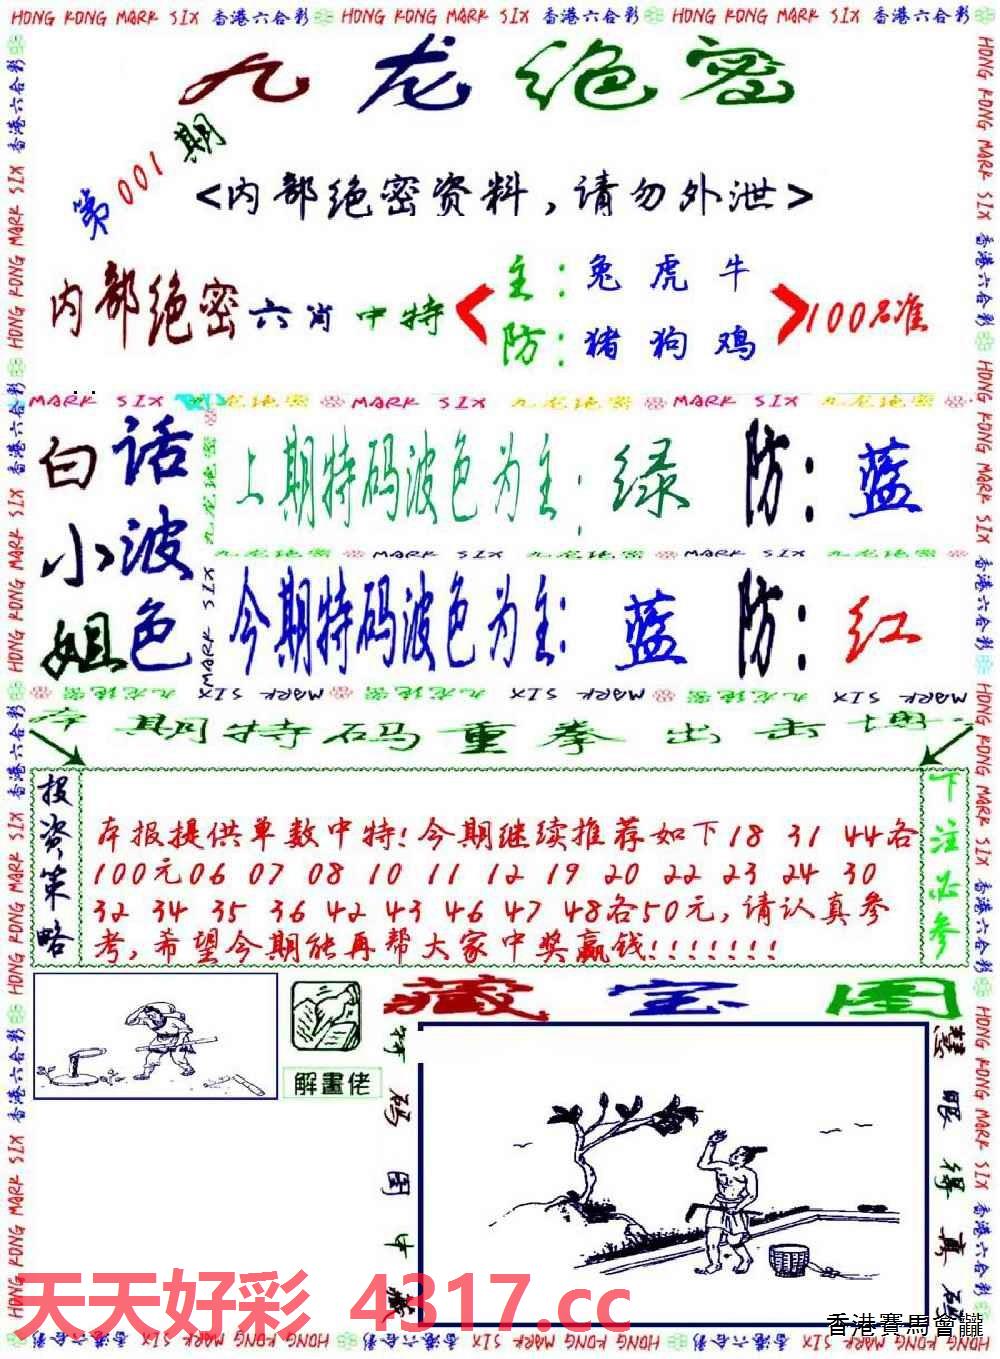 HONG KONG MARK SIX 香港六合彩 HONG KONG MARK SIX 香港六合彩 HONG KONG MARK SIX 香港六合彩
九龙绝密
第001期
<内部绝密资料,请勿外泄>
内部绝密六肖中特
主:兔 虎 牛
防:猪 狗 鸡
100%准
MARK SIX 九龙绝密 MARK SIX 九龙绝密 MARK SIX 九龙绝密
白小姐
话波色
上期特码波色为主:绿 防:蓝
九龙绝密 MARK SIX 九龙绝密 MARK SIX 九龙绝密
今期特码波色为主:蓝 防:红
期特码重拳出击
投资策略
本报提供单数中特!今期继续推荐如下18 31 44各
100元06 07 08 10 11 12 19 20 22 23 24 30
32 34 35 36 42 43 46 47 48各50元,请认真参
考,希望今期能再帮大家中奖赢钱!!!!!!!
下注必参
藏宝图
解畫佬
特码图中藏
慧眼得真码
天天好彩 4317.cc
香港賽馬會